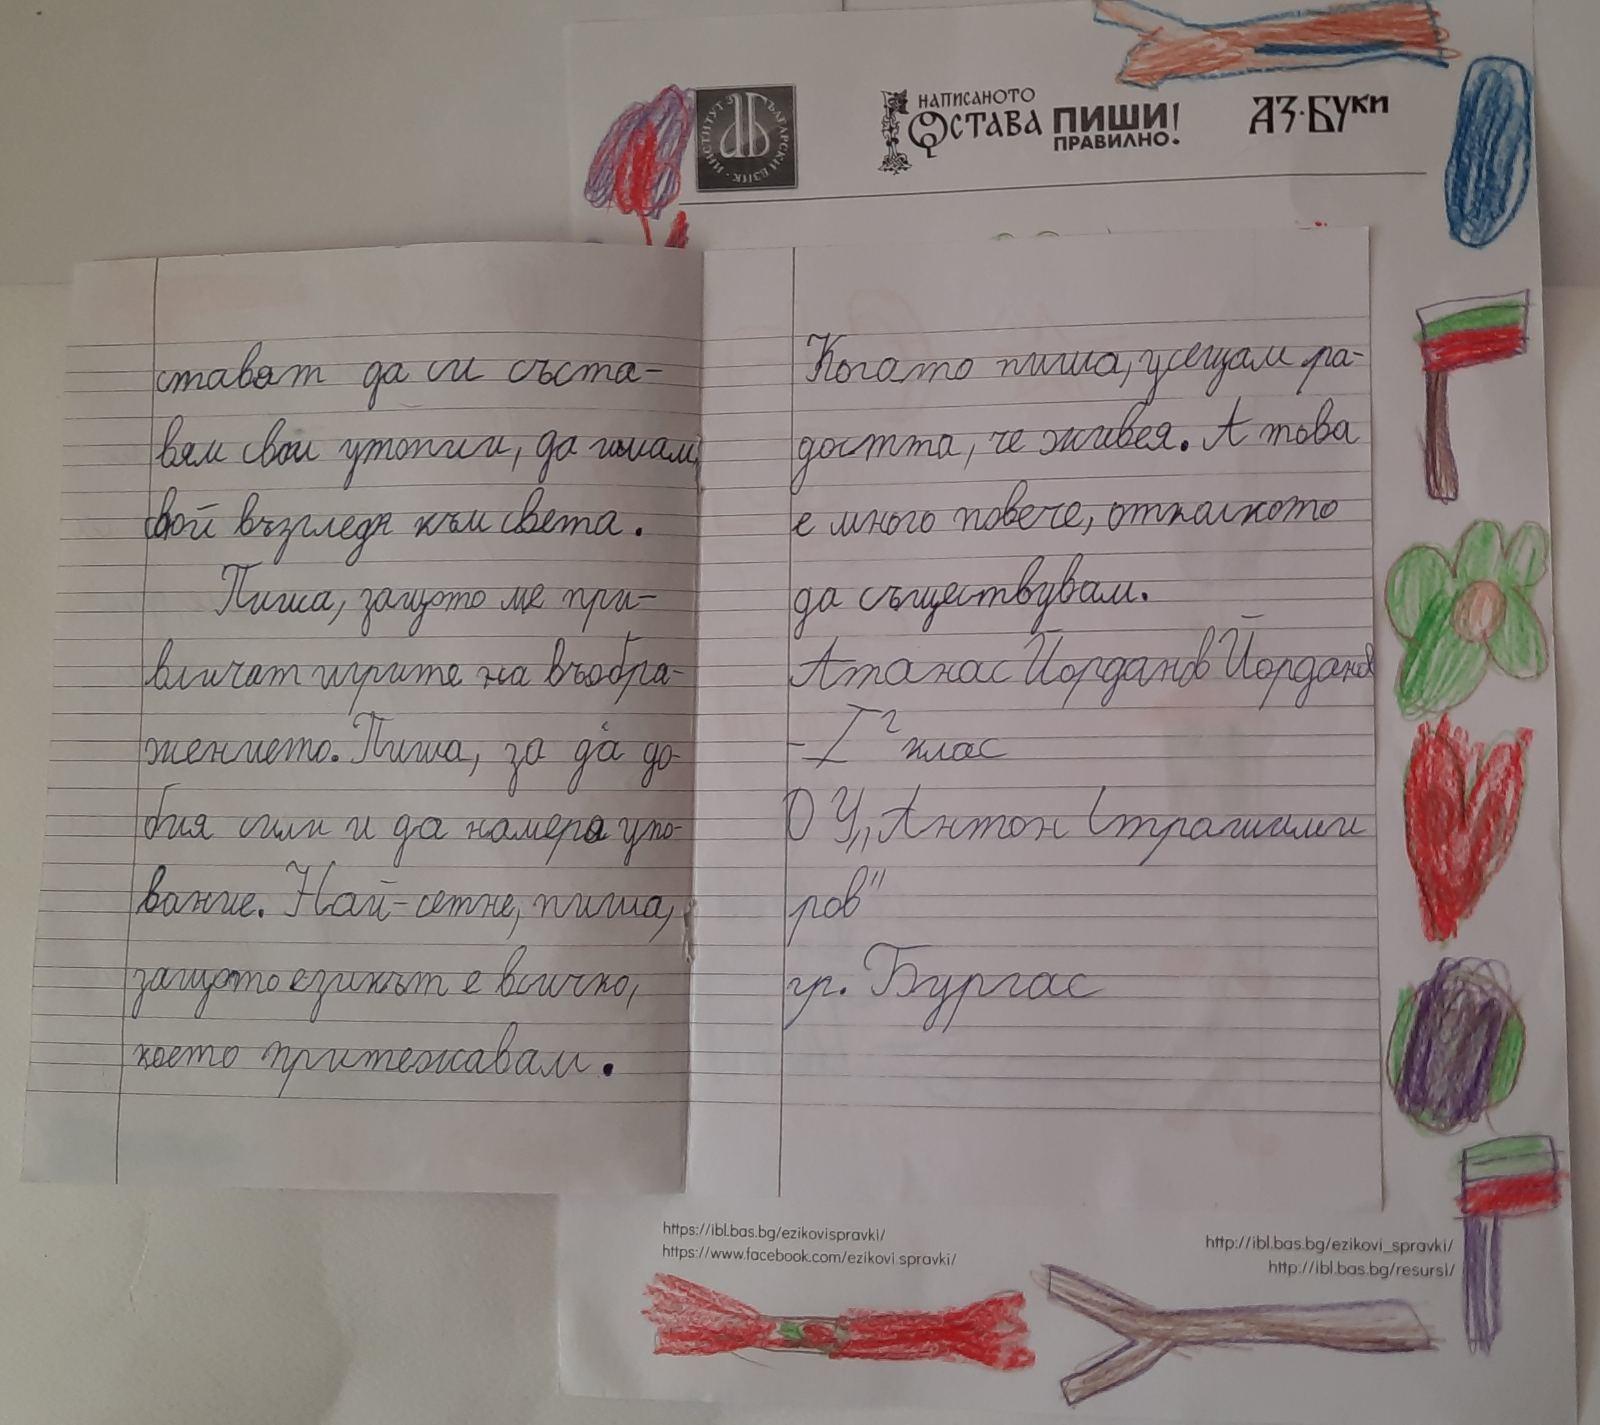 ИНСТИТУТ ЗА БЪЛГАРСКИ ЕЗИК
НАПИСАНОТО
ОСТАВА ПИШИ!
ПРАВИЛНО.
АЗ·БУКИ
ставят да си съста-
вям свои утопии, да имам
свой възгледи към света.
Пиша, защото ме при-
вличат игрите на въобра-
жението. Пиша, за да до-
бия сили и да намеря упо-
вание. Най-сетне, пиша,
защото езикът е всичко,
което притежавам.
Когато пиша, усещам ра-
достта, че живея. А това
е много повече, отколкото
да съществувам.
Атанас Йорданов Йорданов
- I г клас
ОУ „Антон Страшими
ров"
гр. Бургас
https://ibl.bas.bg/ezikovispravki/
https://www.facebook.com/ezikovi spravki/
http://ibl.bas.bg/ezikovi_spravki/
http://ibl.bas.bg/resursi/